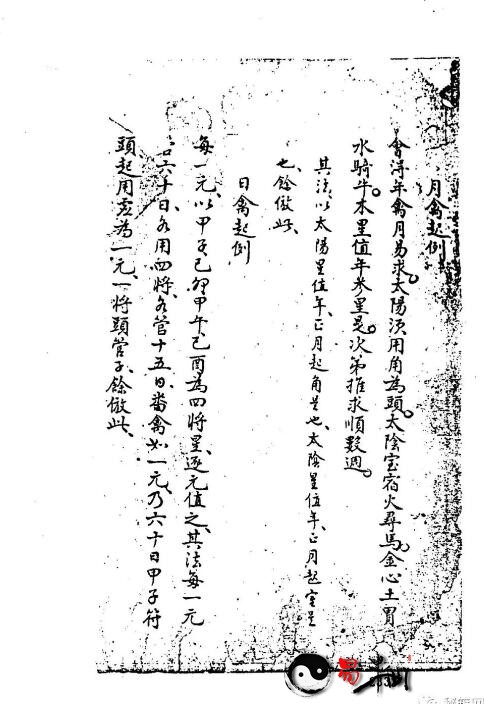 月禽起倒
會得年禽月易求。太陽須用角為頭。太陰室宿火尋馬。金心土胃
水騎牛。木星值年參星是。次第推求順數週。
其法以太陽星值年、正月起角是也、太陰星值年、正月起室是
也、餘倣此、
日禽起倒
每一元、以甲子己卯甲午己酉為四將星、逐元值之、其法每一元
六十日、各用四將、各管十五日、畨禽如一元、乃六十日甲子符
頭起用虛為一元、一將頭管子、餘倣此、